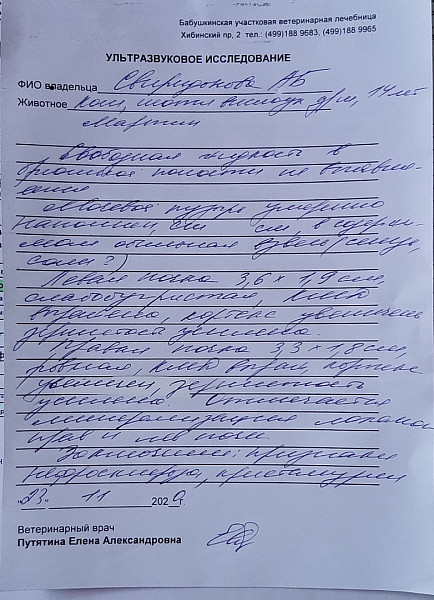 Бабушкинская участковая ветеринарная лечебница
Хибинский пр, 2 тел.: (499)188 9683, (499)188 9965
УЛЬТРАЗВУКОВОЕ ИССЛЕДОВАНИЕ
ФИО владельца Свиридонова АБ
Животное кот, шотл вислоух д/ш, 14 лет
Мартин
Свободная жидкость в
брюшной полости не выявле-
на
Мочевой пузырь умеренно
наполнен, ст см, в содержи-
мом обильная взвесь (
соли?)
Левая почка 3,6 х 1,9 см,
слабобугристая, КМД
выражена, кортекс увеличен
зернистость усилена.
Правая почка 3,3 х 1,8 см,
ровная, КМД выраж, кортекс
увеличен, зернистость
усилена Отмечается
минерализация лоханок
прав и лев почки.
Заключение: признаки
нефросклероза, кристалурии
"23" 11 2020г.
Ветеринарный врач
Путятина Елена Александровна